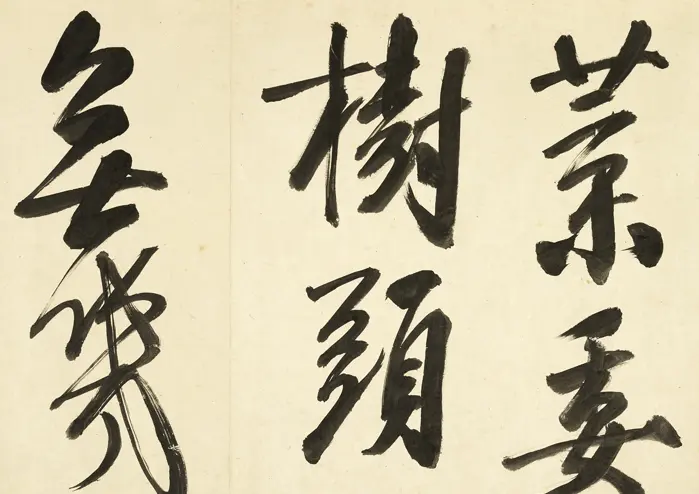 葉委
樹頭
無幾